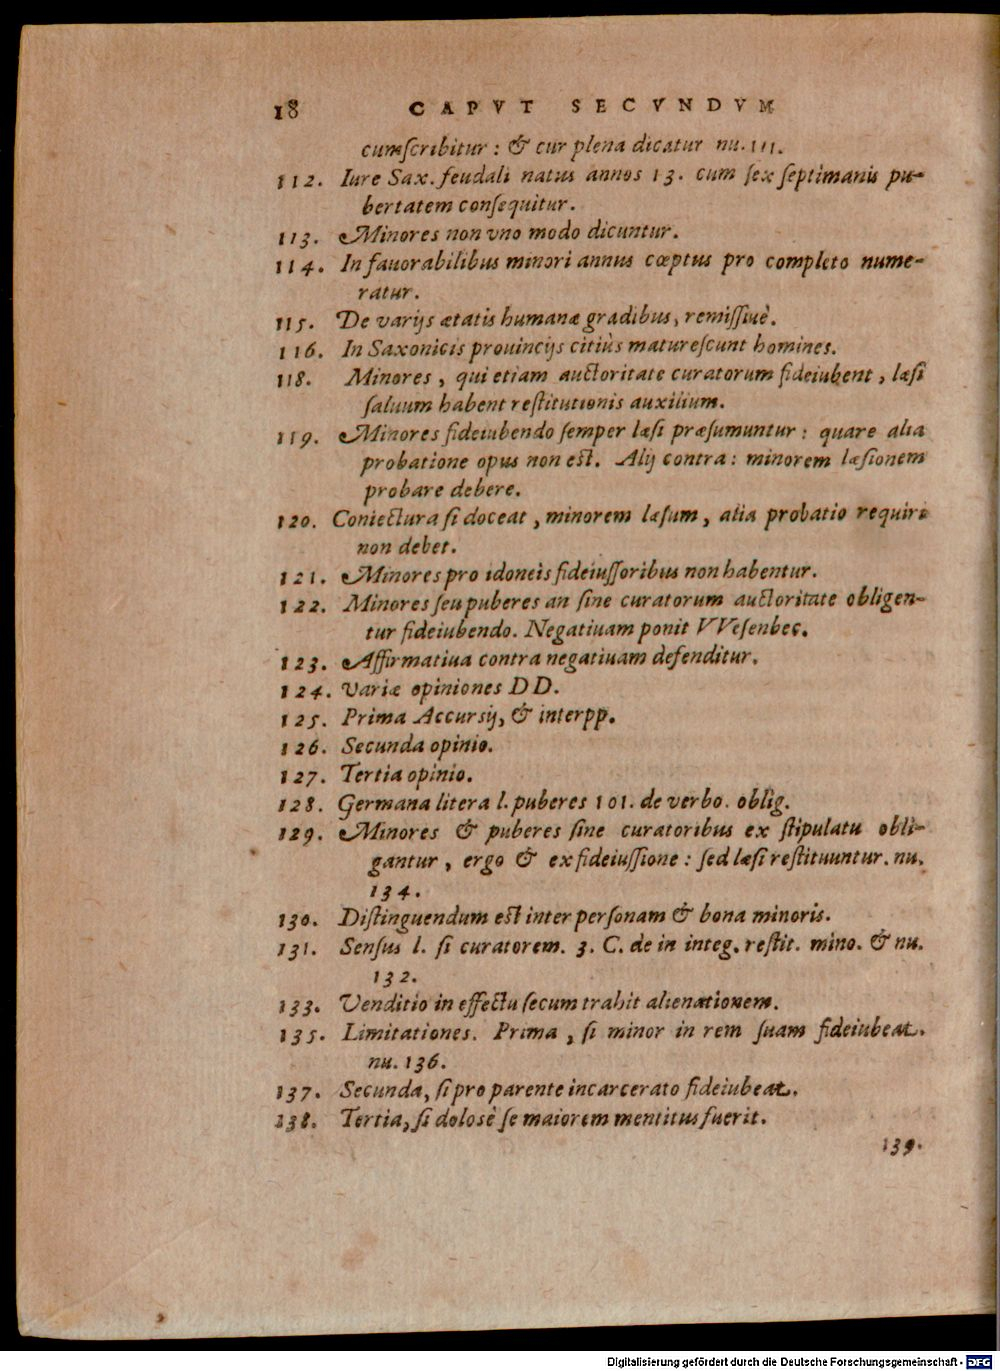 18 CAPVT SECVNDVM
cumſcribitur : & cur plena dicatur nu. 111.
112. Iure Sax. feudali natus annos 13. cum ſex ſeptimanis pu-
bertatem conſequitur.
113. Minores non vno modo dicuntur.
114. In fauorabilibus minori annus cœptus pro completo nume-
ratur.
115. De varijs ætatis humanæ gradibus, remiſſiuè.
116. In Saxonicis prouincijs citiùs matureſcunt homines.
118. Minores, qui etiam auctoritate curatorum fideiubent, læſi
ſaluum habent reſtitutionis auxilium.
119. Minores fideiubendo ſemper læſi præſumuntur : quare alia
probatione opus non eſt. Alij contra : minorem læſionem
probare debere.
120. Coniectura ſi doceat, minorem læſum, alia probatio requiri
non debet.
121. Minores pro idoneis fideiuſſoribus non habentur.
122. Minores ſeu puberes an ſine curatorum auctoritate obligen-
tur fideiubendo. Negatiuam ponit VVeſenbec.
123. Affirmatiua contra negatiuam defenditur.
124. Variæ opiniones DD.
125. Prima Accurſij, & interpp.
126. Secunda opinio.
127. Tertia opinio.
128. Germana litera l. puberes 101. de verbo. oblig.
129. Minores & puberes ſine curatoribus ex ſtipulatu obli-
gantur, ergo & ex fideiuſſione : ſed læſi reſtituuntur. nu.
134.
130. Diſtinguendum eſt inter perſonam & bona minoris.
131. Senſus l. ſi curatorem. 3. C. de in integ. reſtit. mino. & nu.
132.
133. Venditio in effectu ſecum trahit alienationem.
135. Limitationes. Prima, ſi minor in rem ſuam fideiubeat.
nu. 136.
137. Secunda, ſi pro parente incarcerato fideiubeat.
138. Tertia, ſi dolosè ſe maiorem mentitus fuerit.
139.
Digitalisierung gefördert durch die Deutsche Forschungsgemeinschaft - DFG